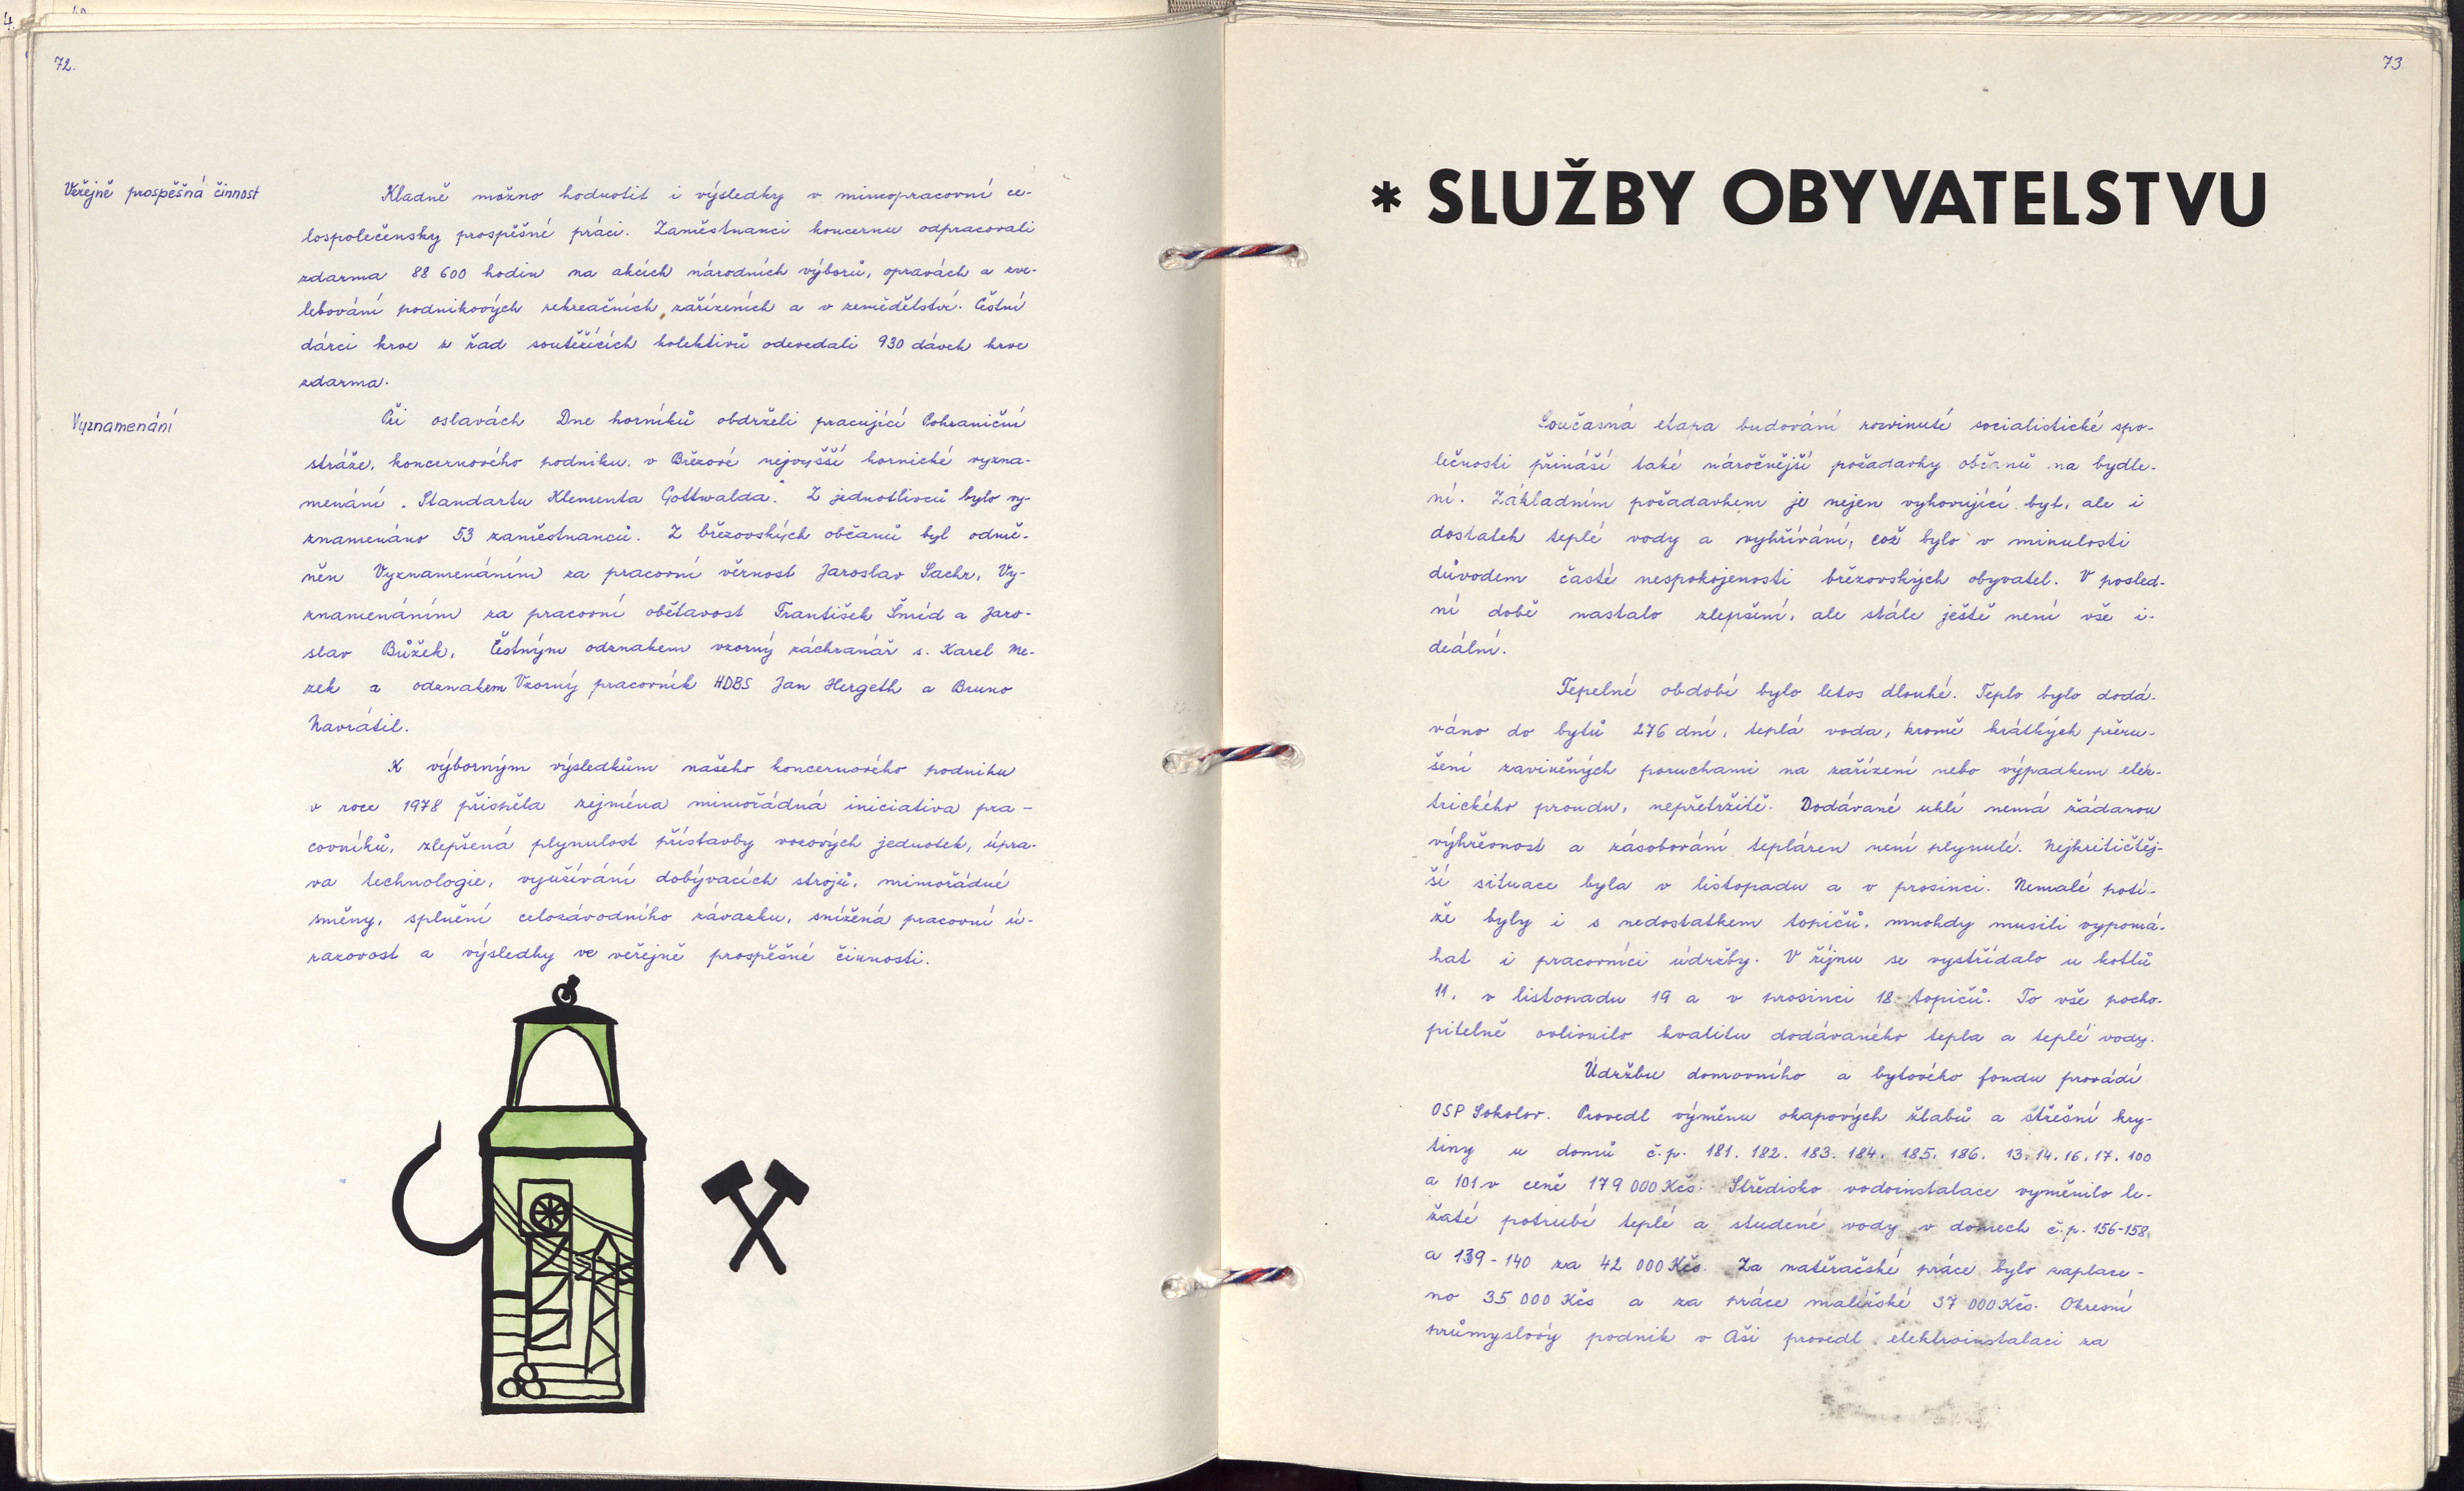 72.
Veřejně prospěšná činnost
Kladně možno hodnotit i výsledky v mimopracovní ce-
lospolečensky prospěšné práci. Zaměstnanci koncernu odpracovali
zdarma 88 600 hodin na akcích národních výborů, opravách a zve-
lebování podnikových rekreačních zařízeních a v zemědělství. Čestní
dárci krve z řad soutěžících kolektivů odevzdali 930 dávek krve
zdarma.
Vyznamenání
Při oslavách Dne horníků obdrželi pracující Pohraniční
stráže, koncernového podniku, v Březové nejvyšší hornické vyzna-
menání „Standartu Klementa Gottwalda." Z jednotlivců bylo vy-
znamenáno 53 zaměstnanců. Z březovských občanů byl odmě-
něn Vyznamenáním za pracovní věrnost Jaroslav Sachr, Vy-
znamenáním za pracovní obětavost František Šmíd a Jaro-
slav Bůžek, Čestným odznakem vzorný záchranář s. Karel Me-
zek a odznakem Vzorný pracovník HDBS Jan Hergeth a Bruno
Navrátil.
K výborným výsledkům našeho koncernového podniku
v roce 1978 přispěla zejména mimořádná iniciativa pra-
covníků, zlepšená plynulost přístavby vozových jednotek, úpra-
va technologie, využívání dobývacích strojů, mimořádné
směny, splnění celozávodního závazku, snížená pracovní ú-
razovost a výsledky ve veřejně prospěšné činnosti.
73
* SLUŽBY OBYVATELSTVU
Současná etapa budování rozvinuté socialistické spo-
lečnosti přináší také náročnější požadavky občanů na bydle-
ní. Základním požadavkem je nejen vyhovující byt, ale i
dostatek teplé vody a vyhřívání, což bylo v minulosti
důvodem časté nespokojenosti březovských obyvatel. V posled-
ní době nastalo zlepšení, ale stále ještě není vše i-
deální.
Tepelné období bylo letos dlouhé. Teplo bylo dodá-
váno do bytů 276 dní, teplá voda, kromě krátkých přeru-
šení zaviněných poruchami na zařízení nebo výpadkem elek-
trického proudu, nepřetržitě. Dodávané uhlí nemá žádanou
výhřevnost a zásobování tepláren není plynulé. Nejkritičtěj-
ší situace byla v listopadu a v prosinci. Nemalé potí-
že byly i s nedostatkem topičů, mnohdy musili vypomá-
hat i pracovníci údržby. V říjnu se vystřídalo u kotlů
11, v listopadu 19 a v prosinci 18 topičů. To vše pocho-
pitelně ovlivnilo kvalitu dodávaného tepla a teplé vody.
Údržbu domovního a bytového fondu provádí
OSP Sokolov. Provedl výměnu okapových žlabů a střešní kry-
tiny u domů č.p. 181, 182, 183, 184, 185, 186, 13, 14, 16, 17, 100
a 101 v ceně 179 000 Kčs. Středisko vodoinstalace vyměnilo le-
žaté potrubí teplé a studené vody v domech č.p. 156-158
a 139-140 za 42 000 Kčs. Za natěračské práce bylo zaplace-
no 35 000 Kčs a za práce malířské 37 000 Kčs. Okresní
průmyslový podnik v Aši provedl elektroinstalaci za